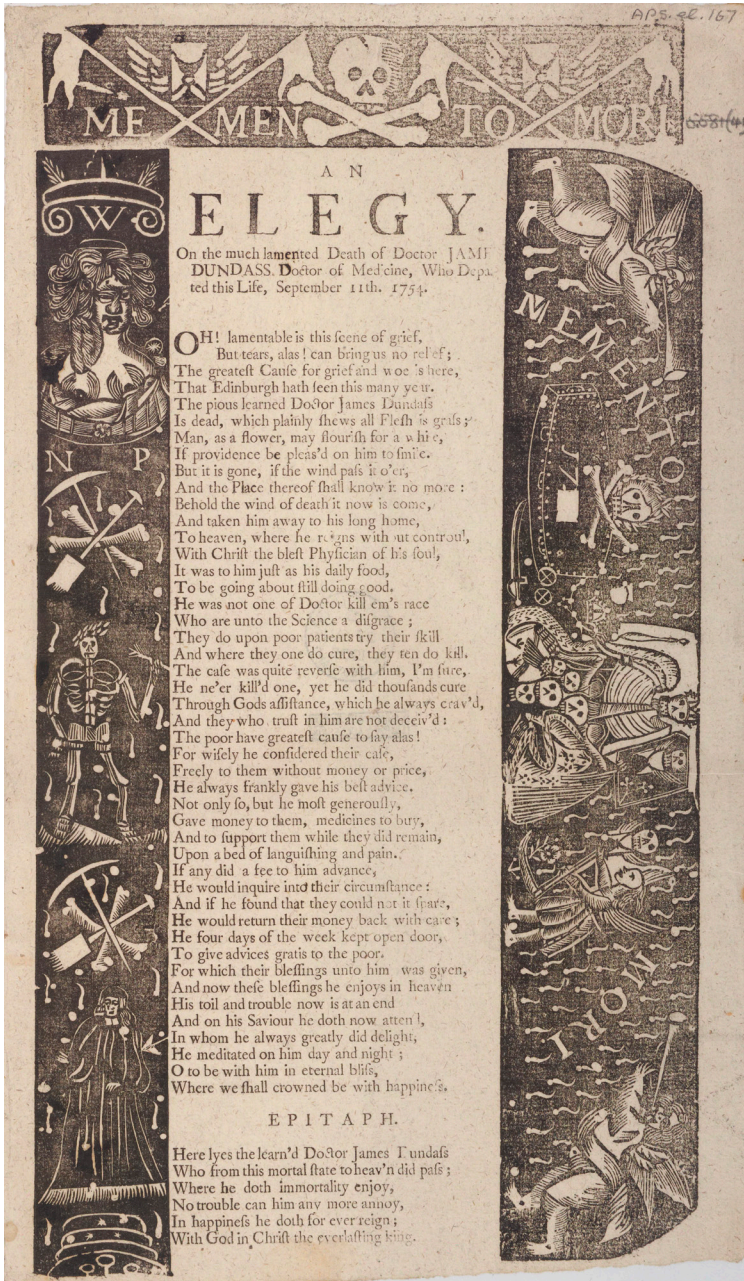 APS.el.167
ME MEN TO MORI
W
N P
MEMENTO
MORI
AN
ELEGY.
On the much lamented Death of Doctor JAM
DUNDASS. Doctor of Medcine, Who Depa
ted this Life, September 11th. 1754.
OH! lamentable is this ſcene of grief,
But tears, alas! can bring us no relief;
The greateſt Cauſe for grief and woe is here,
That Edinburgh hath ſeen this many year.
The pious learned Doctor James Dundaſs
Is dead, which plainly ſhews all Fleſh is graſs;
Man, as a flower, may flouriſh for a while,
If providence be pleas'd on him to ſmile.
But it is gone, if the wind paſs it o'er,
And the Place thereof ſhall know it no more:
Behold the wind of death it now is come,
And taken him away to his long home,
To heaven, where he reigns without controul,
With Chriſt the bleſt Phyſician of his ſoul,
It was to him juſt as his daily food,
To be going about ſtill doing good.
He was not one of Doctor kill em's race
Who are unto the Science a diſgrace;
They do upon poor patients try their ſkill
And where they one do cure, they ten do kill.
The caſe was quite reverſe with him, I'm ſure,
He ne'er kill'd one, yet he did thouſands cure
Through Gods aſſiſtance, which he always crav'd,
And they who truſt in him are not deceiv'd:
The poor have greateſt cauſe to ſay alas!
For wiſely he conſidered their caſe,
Freely to them without money or price,
He always frankly gave his beſt advice.
Not only ſo, but he moſt generouſly,
Gave money to them, medicines to buy,
And to ſupport them while they did remain,
Upon a bed of languiſhing and pain.
If any did a fee to him advance,
He would inquire into their circumſtance:
And if he found that they could not it ſpare,
He would return their money back with care;
He four days of the week kept open door,
To give advices gratis to the poor.
For which their bleſſings unto him was given,
And now theſe bleſſings he enjoys in heaven
His toil and trouble now is at an end
And on his Saviour he doth now attend,
In whom he always greatly did delight,
He meditated on him day and night;
O to be with him in eternal bliſs,
Where we ſhall crowned be with happineſs.
EPITAPH.
Here lyes the learn'd Doctor James Dundaſs
Who from this mortal ſtate to heav'n did paſs;
Where he doth immortality enjoy,
No trouble can him any more annoy,
In happineſs he doth for ever reign;
With God in Chriſt the everlaſting king.